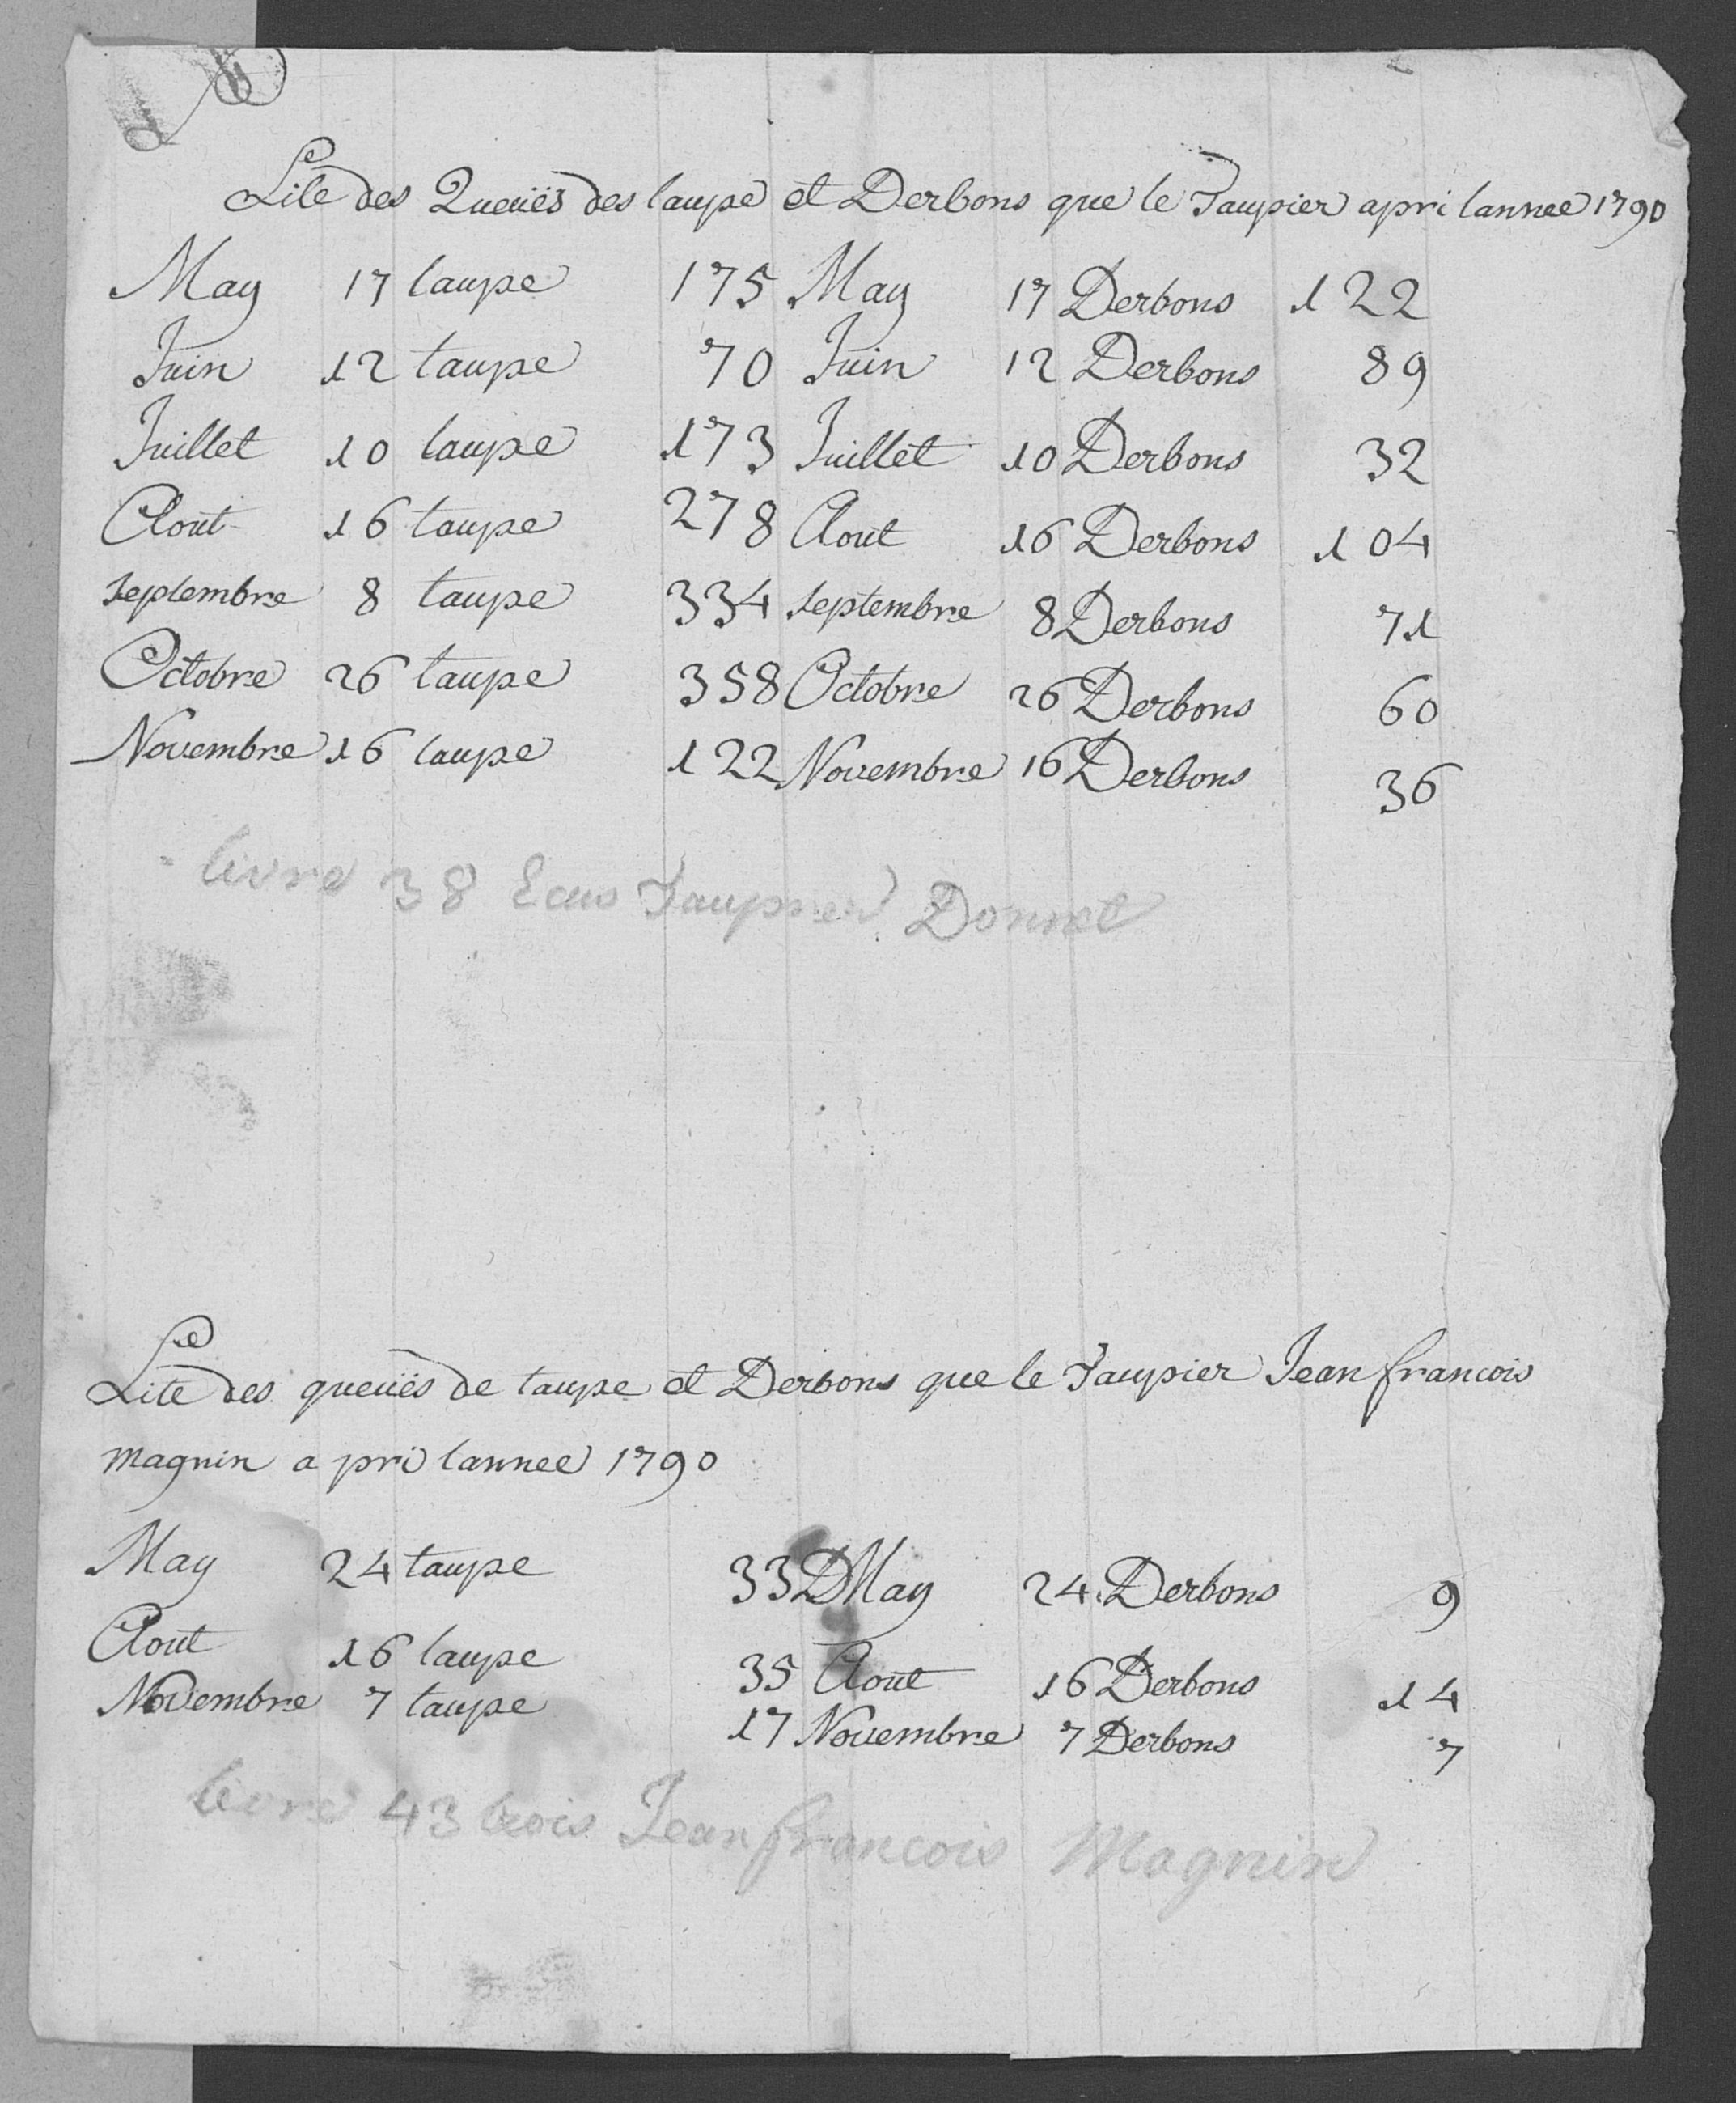 Lite des Queües des taupe et Derbons que le Taupier a pri lannee 1790
May 17 taupe 175 May 17 Derbons 122
Juin 12 taupe 70 Juin 12 Derbons 89
Juillet 10 taupe 173 Juillet 10 Derbons 32
Aout 16 taupe 278 Aout 16 Derbons 104
Septembre 8 taupe 334 Septembre 8 Derbons 71
Octobre 26 taupe 358 Octobre 26 Derbons 60
Novembre 16 taupe 122 Novembre 16 Derbons 36
livre 38 Ecus Taupier Donnet
Lite des queües de taupe et Derbons que le Taupier Jean francois
magnin a pri lannee 1790
May 24 taupe 33 May 24 Derbons 9
Aout 16 taupe 35 Aout 16 Derbons 14
Novembre 7 taupe 17 Novembre 7 Derbons 7
livre 43 Jean francois Magnin